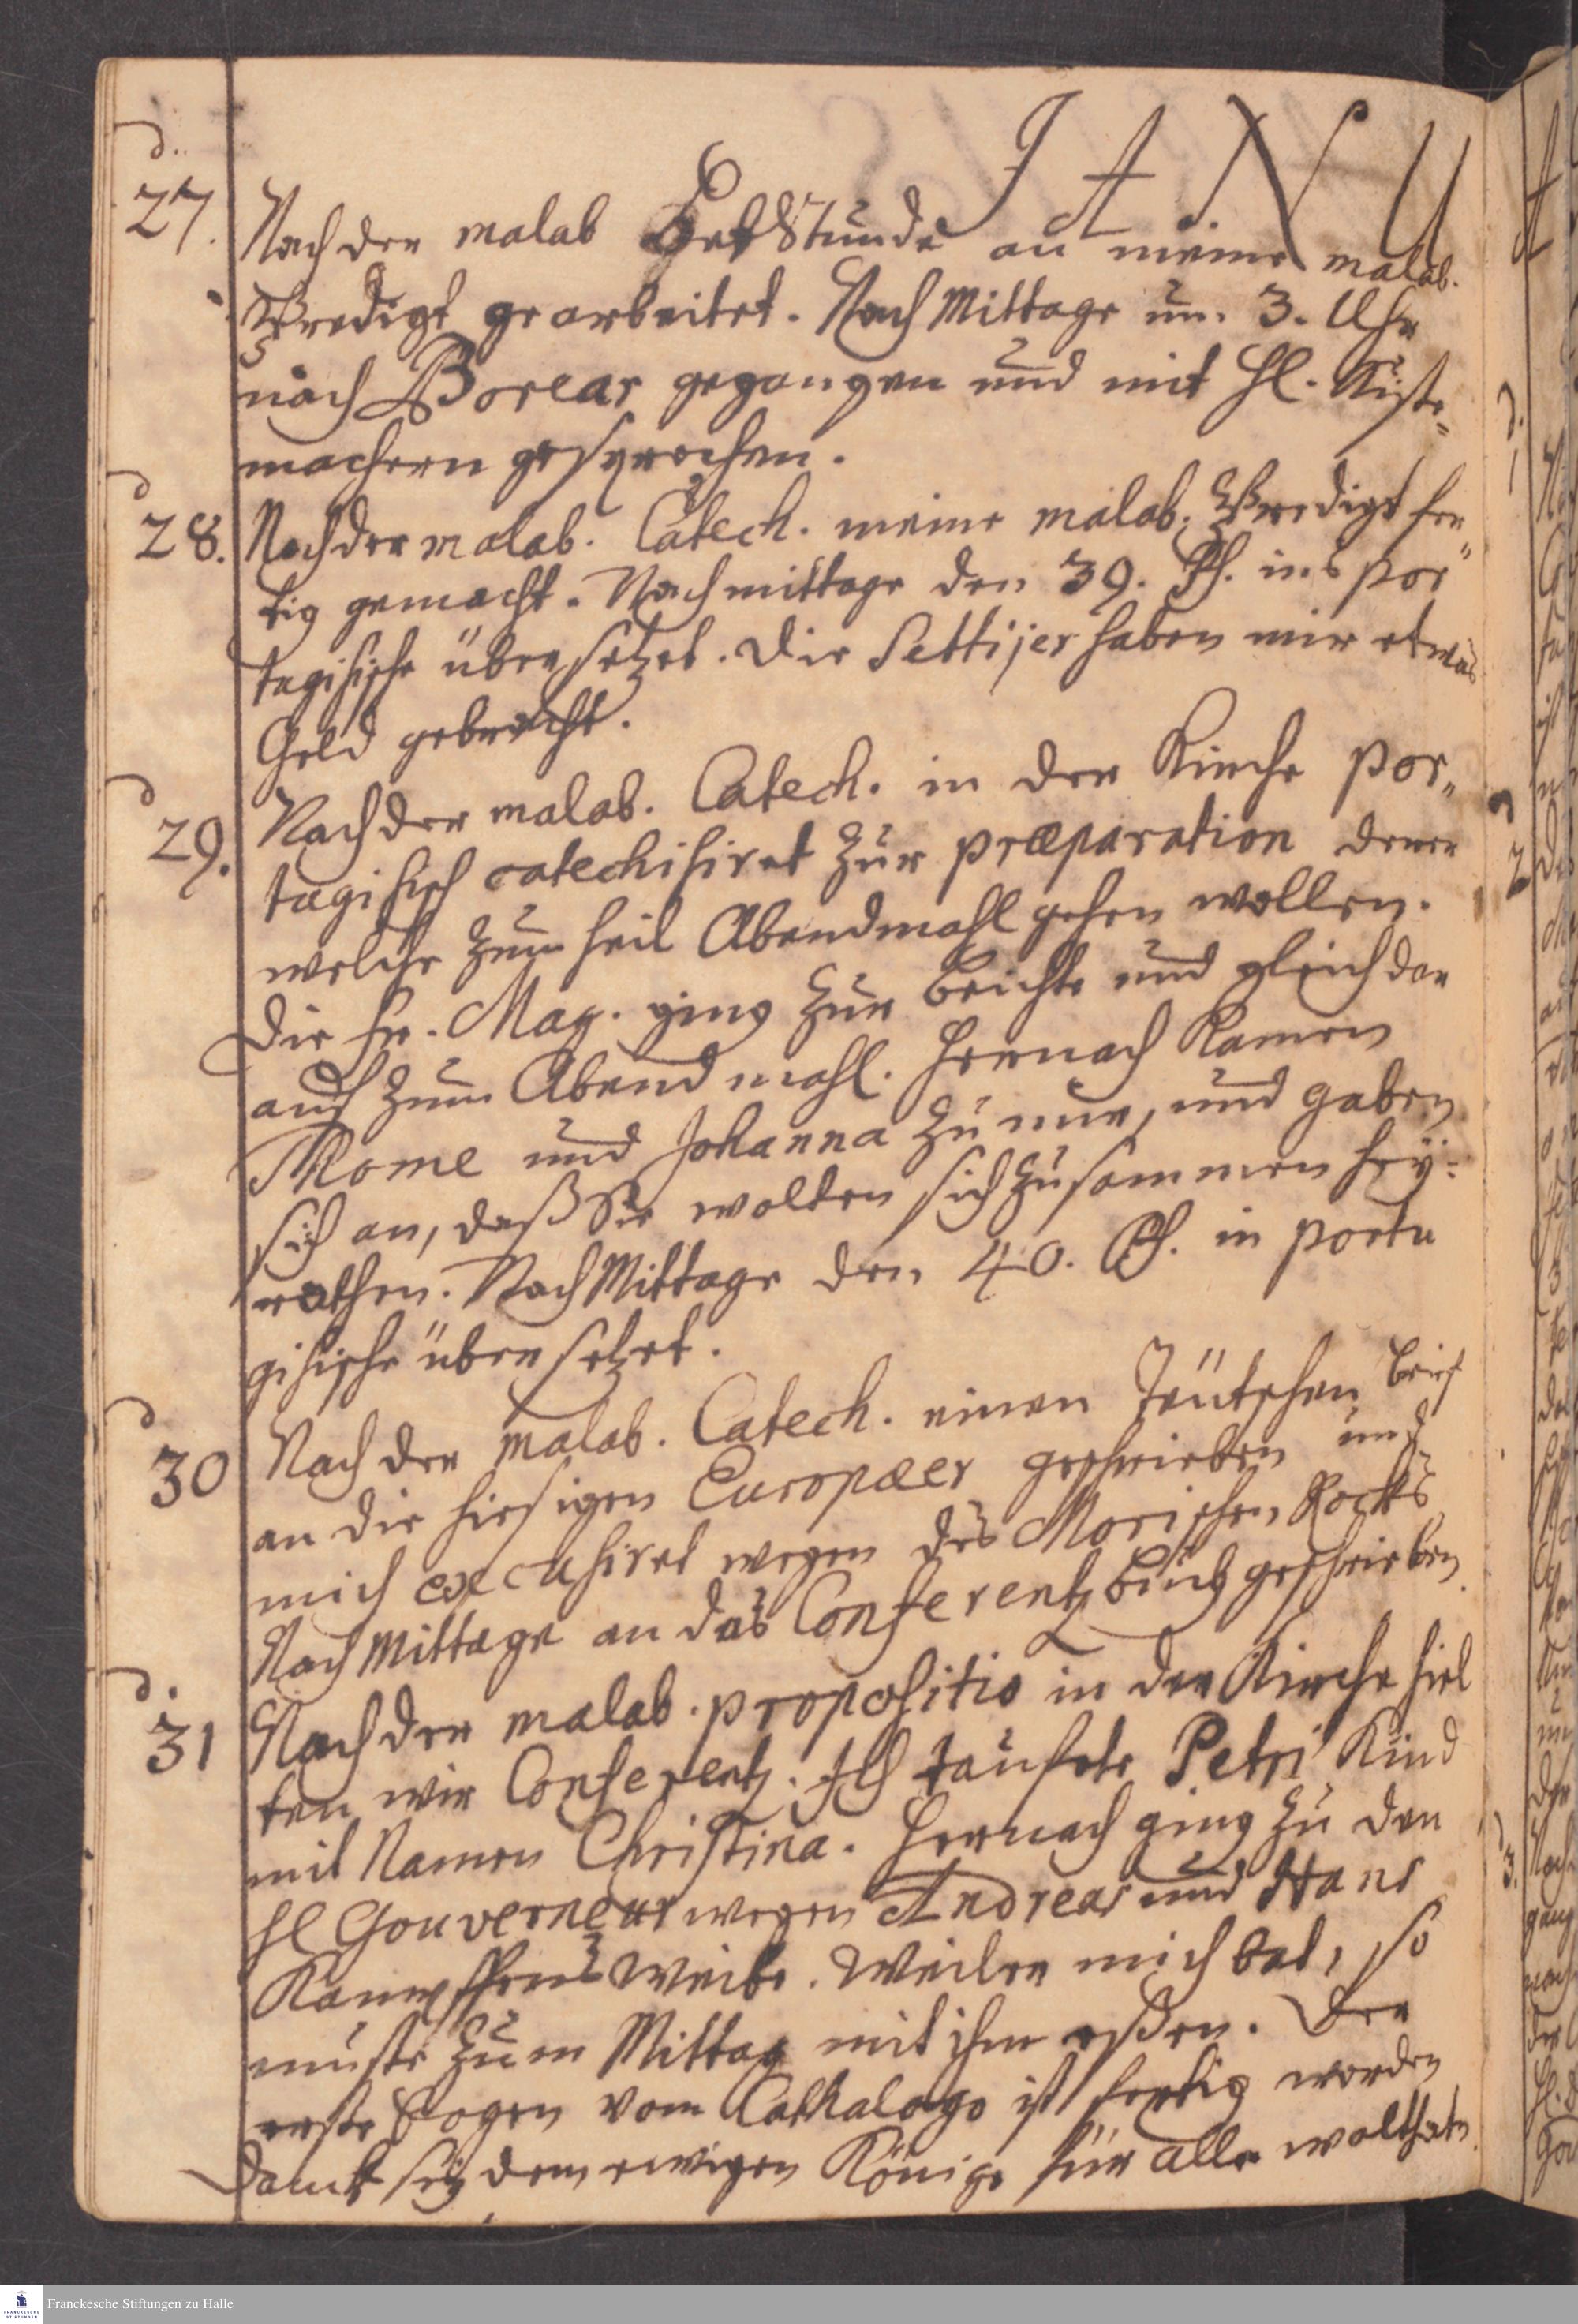 JANU
d.
27. Nach der malab BetStunde an meine malab.
Predigt gearbeitet. Nach Mittage um 3. Uhr
nach Borear gegangen und mit Hl. Kiste„
machern gesprochen.
d
28. Nach der malab. Catech. meine malab. Predigt fer„
tig gemacht. Nachmittage den 39. Ps. ins por„
tugisische übersetzet. Die Settijes haben mir etwas
Geld gebracht.
d
29. Nach der malab. Catech. in der Kirche por„
tugisisch catechisiret zur præparation denen
welche zum heil Abendmahl gehen wollen.
Die Fr. Mag. ging zur beichte und gleich dar
auf zum Abendmahl. Hernach kamen
Thome und Johanna zu mir, und gaben
sich an, daß Sie wolten sich zusammen hey-
rathen. Nach Mittage den 40. Ps. in portu
gisische übersetzet.
d
30 Nach der malab. Catech. einen Teütschen brief
an die hiesigen Europæer geschrieben und
mich excusiret wegen des Morischen Rocks
Nach Mittage an das Conferentz buch geschrieben.
d.
31 Nach der malab. propositio in der Kirche hiel
ten wir Conferentz. Ich taufete Petri Kind
mit Namen Christina. Hernach ging zu den
Hl Gouverneur wegen Andreas und Hans
Weibe. Weiler mich bat, so
muste zum Mittag mit ihm eßen. Der
erste bogen vom Cathalogo ist fertig worden
Danck sey dem ewigen Könige für alle wolthaten
Franckesche Stiftungen zu Halle